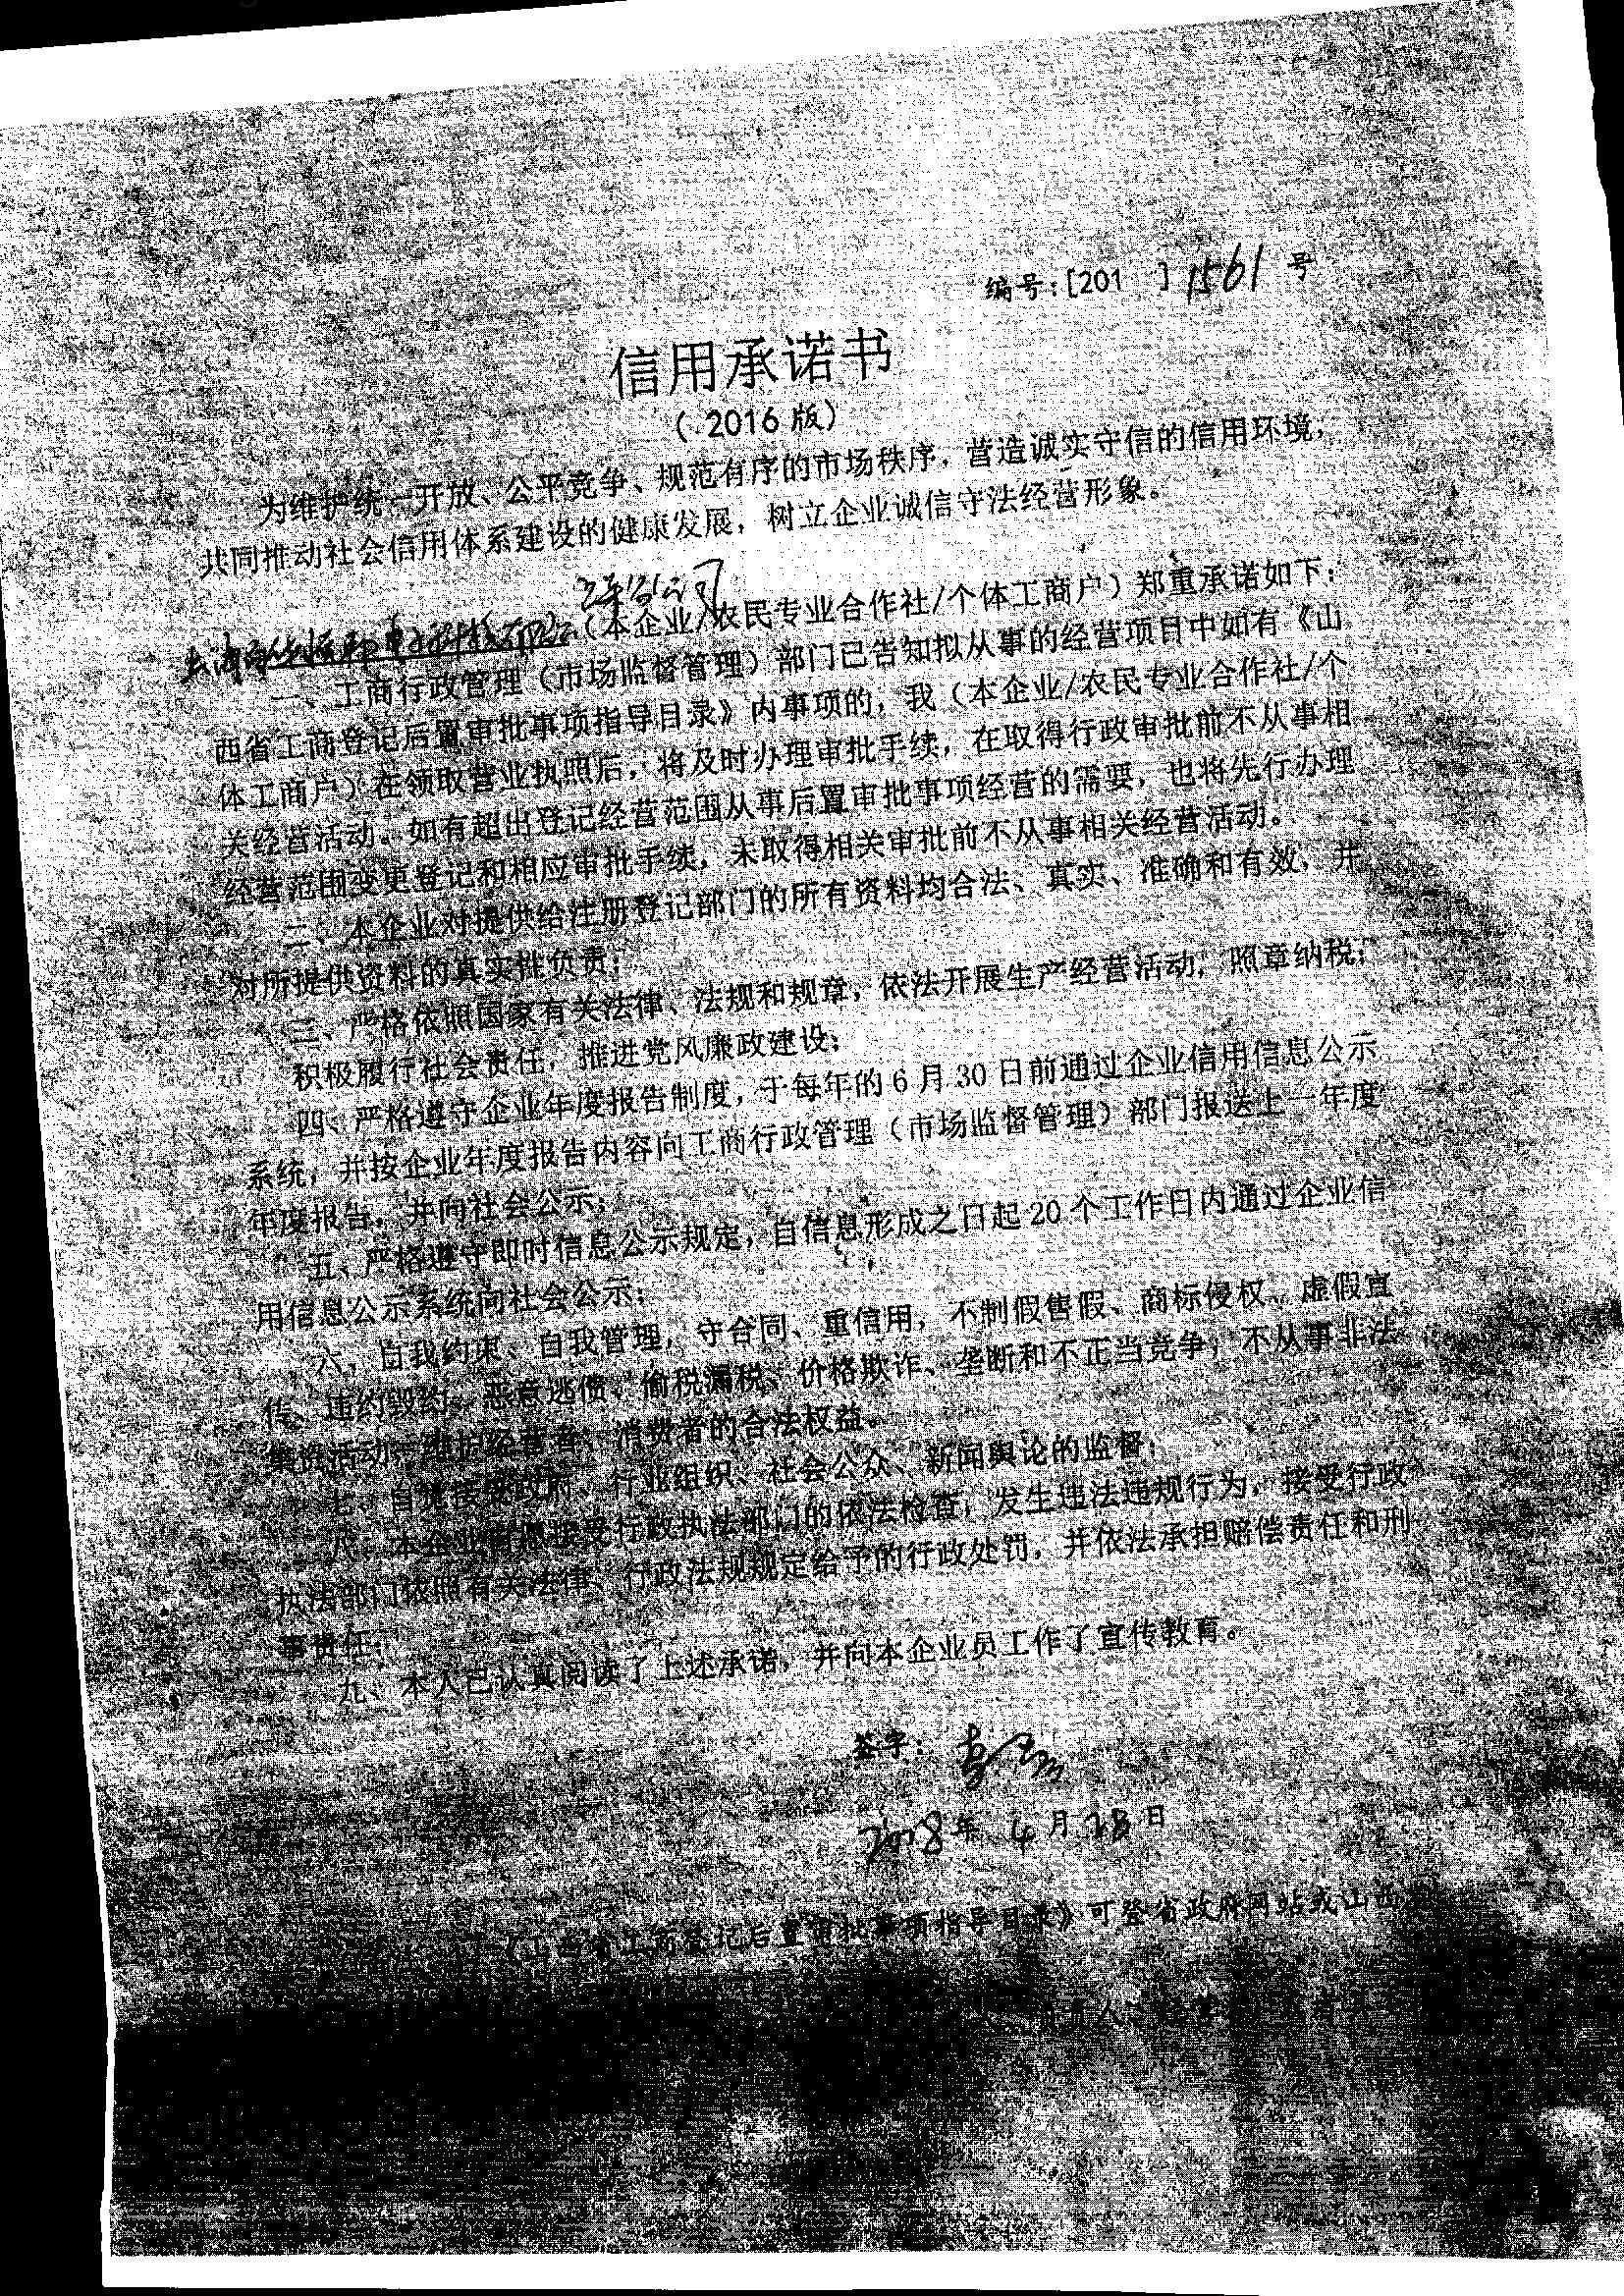 编号：[201 ] 1561 号
信用承诺书
（2016版）
为维护统一开放、公平竞争、规范有序的市场秩序，营造诚实守信的信用环境，
共同推动社会信用体系建设的健康发展，树立企业诚信守法经营形象。
（本企业/农民专业合作社/个体工商户）郑重承诺如下：
一、工商行政管理（市场监督管理）部门已告知拟从事的经营项目中如有《山
西省工商登记后置审批事项指导目录》内事项的，我（本企业/农民专业合作社/个
体工商户）在领取营业执照后，将及时办理审批手续，在取得行政审批前不从事相
关经营活动。如有超出登记经营范围从事后置审批事项经营的需要，也将先行办理
经营范围变更登记和相应审批手续，未取得相关审批前不从事相关经营活动。
二、本企业对提供给注册登记部门的所有资料均合法、真实、准确和有效，并
对所提供资料的真实性负责；
三、严格依照国家有关法律、法规和规章，依法开展生产经营活动，照章纳税；
积极履行社会责任，推进党风廉政建设；
四、严格遵守企业年度报告制度，于每年的6月30日前通过企业信用信息公示
系统，并按企业年度报告内容向工商行政管理（市场监督管理）部门报送上一年度
年度报告，并向社会公示；
五、严格遵守即时信息公示规定，自信息形成之日起20个工作日内通过企业信
用信息公示系统向社会公示；
六、自我约束、自我管理，守合同、重信用，不制假售假、商标侵权、虚假宣
传、违约毁约、恶意逃债、偷税漏税、价格欺诈、垄断和不正当竞争，不从事非法
集资活动，维护经营者、消费者的合法权益。
七、自觉接受政府、行业组织、社会公众、新闻舆论的监督；
八、本企业自愿接受行政执法部门的依法检查，发生违法违规行为，接受行政
执法部门依照有关法律、行政法规规定给予的行政处罚，并依法承担赔偿责任和刑
事责任；
九、本人已认真阅读了上述承诺，并向本企业员工作了宣传教育。
签字：
2018年 4月28日
《山西省工商登记后置审批事项指导目录》可登省政府网站或山西